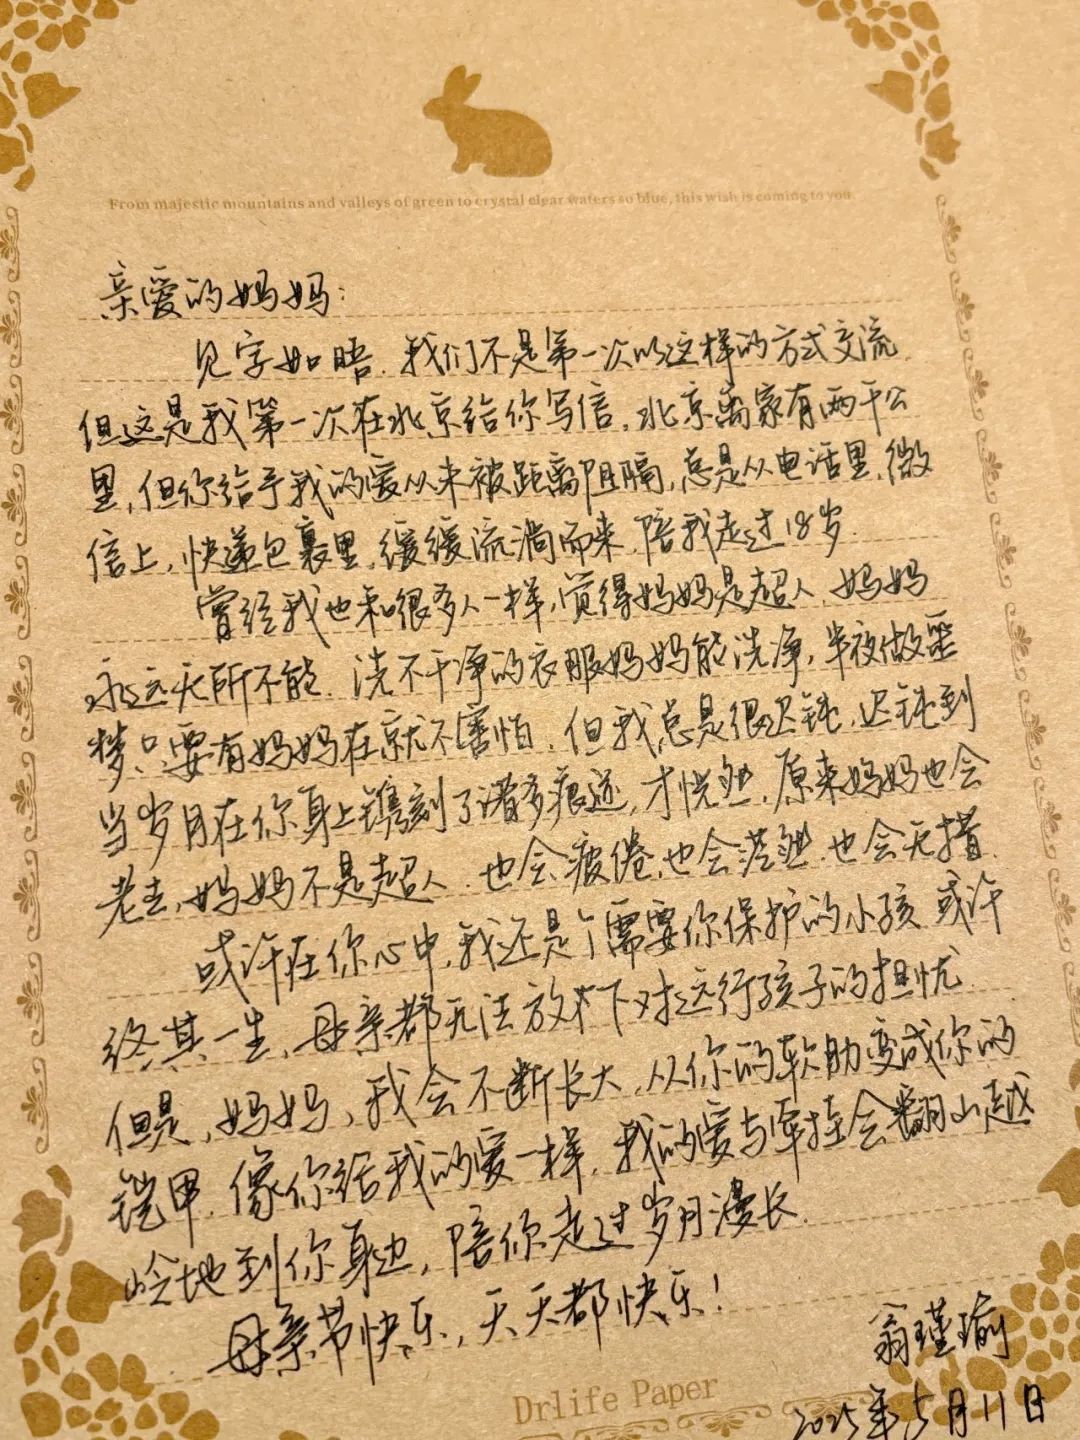 From majestic mountains and valleys of green to crystal clear waters so blue, this wish is coming to you.
亲爱的妈妈:
见字如晤.我们不是第一次以这样的方式交流.
但这是我第一次在北京给你写信.北京离家有两千公
里,但你给予我的爱从未被距离阻隔,总是从电话里,微
信上,快递包裹里,缓缓流淌而来,陪我走过18岁.
曾经我也和很多人一样,觉得妈妈是超人,妈妈
永远无所不能.洗不干净的衣服妈妈能洗净,半夜做噩
梦只要有妈妈在就不害怕.但我总是很迟钝,迟钝到
当岁月在你身上镌刻了诸多痕迹,才恍然,原来妈妈也会
老去,妈妈不是超人.也会疲倦,也会茫然.也会无措.
或许在你心中,我还是个需要你保护的小孩.或许
终其一生,母亲都无法放下对远行孩子的担忧.
但是,妈妈,我会不断长大,从你的软肋变成你的
铠甲.像你给我的爱一样,我的爱与牵挂会翻山越
岭地到你身边,陪你走过岁月漫长.
母亲节快乐,天天都快乐!
翁瑾瑜
2025年5月11日
Drlife Paper